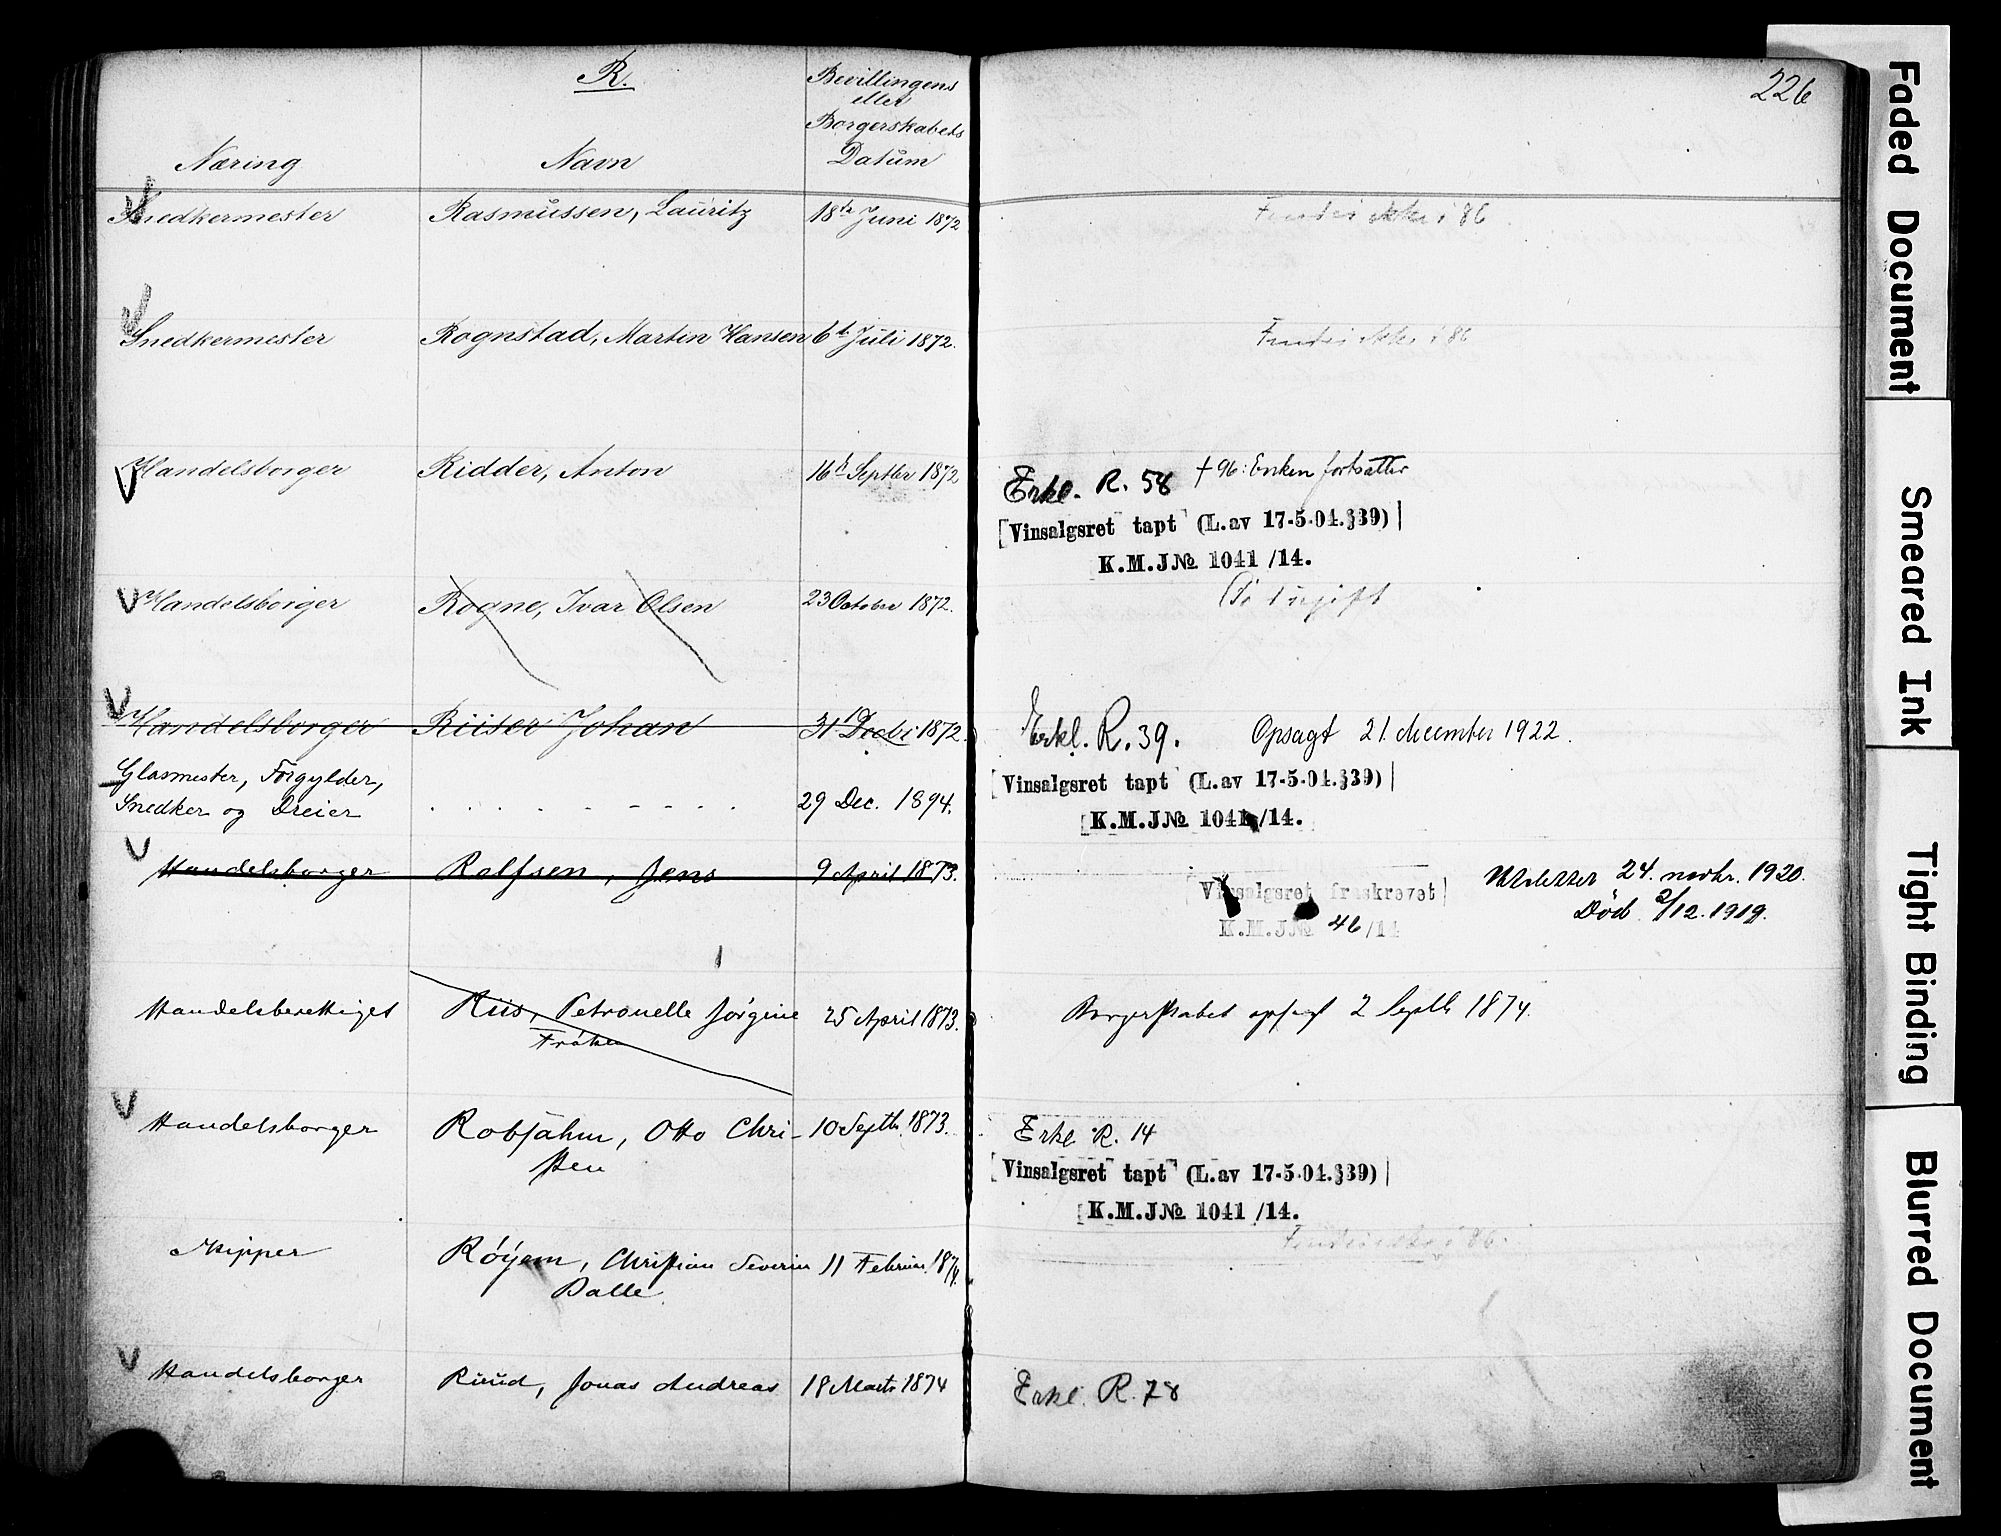 R.
Bevillingens
eller
Borgerskabets
Datum
Næring
Navn
226
Snedkermester Rasmussen, Lauritz 18de Juni 1872 Findes ikke i 86
Snedkermester Rognstad, Martin Hansen 6te Juli 1872. Findes ikke i 86
Handelsborger Ridder, Anton 16de Septbr 1872
Erkl. R. 58 † 96: Enken fortsætter
[Vinsalgsret tapt (L.av 17-5-04.§39)]
K.M.J№ 1041/14.
Handelsborger Rogne, Ivar Olsen 23 October 1872.
Handelsborger Riiser Johan 31 Decbr 1872.
Erkl. R. 39. Opsagt 21. december 1922.
Glasmester, Forgylder,
Snedker og Dreier - - - - - - - - 29 Dec. 1894.
[Vinsalgsret tapt (L.av 17-5-04.§39)]
[K.M.J№ 1041/14.
Handelsborger Rolfsen, Jens 9 April 1873.
[Vinsalgsret fraskrevet]
K.M.J№ 46/14
24. novbr. 1920.
Død 2/12.1919.
Handelsberettiget Riis, Petronelle Jørgine 25 April 1873.
Frøken
Borgerskabet opsagt 2 Septb 1874.
Handelsborger Robsahm, Otto Chri- 10 Septb. 1873.
sten
Erkl R. 14
[Vinsalgsret tapt (L.av 17-5-04.§39)]
[K.M.J№ 1041/14.
Skipper Røyem, Christian Severin 11 Februar 1874.
Balle
Findes ikke i 86.
Handelsborger Ruud, Jonas Andreas 18 Marts 1874
Erkl. R. 78
Faded Document
Smeared Ink
Tight Binding
Blurred Document